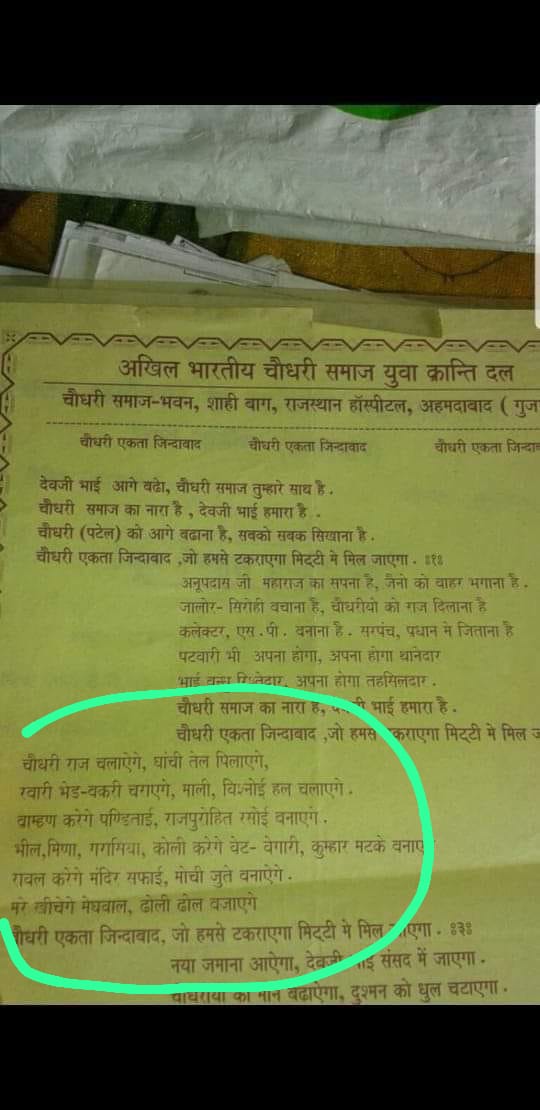 अखिल भारतीय चौधरी समाज युवा क्रान्ति दल
चौधरी समाज-भवन, शाही बाग, राजस्थान हॉस्पीटल, अहमदाबाद ( गुज
चौधरी एकता जिन्दाबाद चौधरी एकता जिन्दाबाद चौधरी एकता जिन्दाब
देवजी भाई आगे बढो, चौधरी समाज तुम्हारे साथ है .
चौधरी समाज का नारा है , देवजी भाई हमारा है .
चौधरी (पटेल) को आगे बढाना है, सबको सबक सिखाना है .
चौधरी एकता जिन्दाबाद ,जो हमसे टकराएगा मिट्टी मे मिल जाएगा . ॥१॥
अनूपदास जी महाराज का सपना है, जैनो को बाहर भगाना है .
जालोर- सिरोही बचाना है, चौधरीयो को राज दिलाना है
कलेक्टर, एस .पी . बनाना है . सरपंच, प्रधान मे जिताना है
पटवारी भी अपना होगा, अपना होगा थानेदार
भाई बन्धु रिश्तेदार, अपना होगा तहसिलदार .
चौधरी समाज का नारा है, देवजी भाई हमारा है .
चौधरी एकता जिन्दाबाद ,जो हमसे टकराएगा मिट्टी मे मिल ज
चौधरी राज चलाऐंगे, घांची तेल पिलाएगे,
रबारी भेड-बकरी चराएगे, माली, विश्नोई हल चलाएगे .
ब्राम्हण करेगे पण्डिताई, राजपुरोहित रसोई बनाएगे .
भील,मिणा, गरासिया, कोली करेंगे वेट- वेगारी, कुम्हार मटके बनाए
रावल करेंगे मंदिर सफाई, मोची जुते बनाऐगे .
मरे खीचेगे मेघवाल, ढोली ढोल बजाएगे
चौधरी एकता जिन्दाबाद, जो हमसे टकराएगा मिट्टी मे मिल जाएगा . ॥३॥
नया जमाना आऐगा, देवजी भाई संसद में जाएगा .
चौधरीयो का मान बढाऐगा, दुश्मन को धुल चटाएगा .